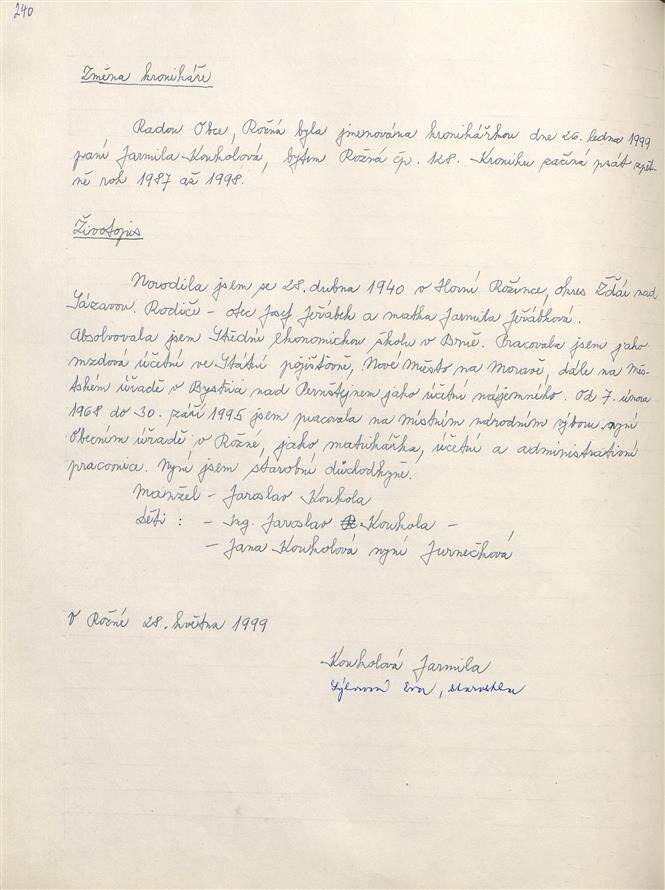 240
Změna kronikáře
Radou Obce, Rožná byla jmenována kronikářkou dne 26. ledna 1999
paní Jarmila Koukolová, bytem Rožná čp. 128. Kroniku začíná psát zpět-
ně rok 1987 až 1998.
Životopis
Narodila jsem se 28. dubna 1940 v Horní Rožínce, okres Žďár nad
Sázavou. Rodiče – otec Josef Jeřábek a matka Jarmila Jeřábková.
Absolvovala jsem Střední ekonomickou školu v Brně. Pracovala jsem jako
mzdová účetní ve Státní pojišťovně, Nové Město na Moravě, dále na Mě-
stském úřadě v Bystřici nad Pernštejnem jako účetní nájemného. Od 7. února
1968 do 30. září 1995 jsem pracovala na místním národním výboru nyní
Obecním úřadě v Rožné, jako matrikářka, účetní a administrativní
pracovnice. Nyní jsem starobní důchodkyně.
Manžel – Jaroslav Koukola
Děti : – Ing. Jaroslav Koukola –
– Jana Koukolová nyní Jurnečková
V Rožné 28. května 1999
Koukolová Jarmila
Eva, starostka